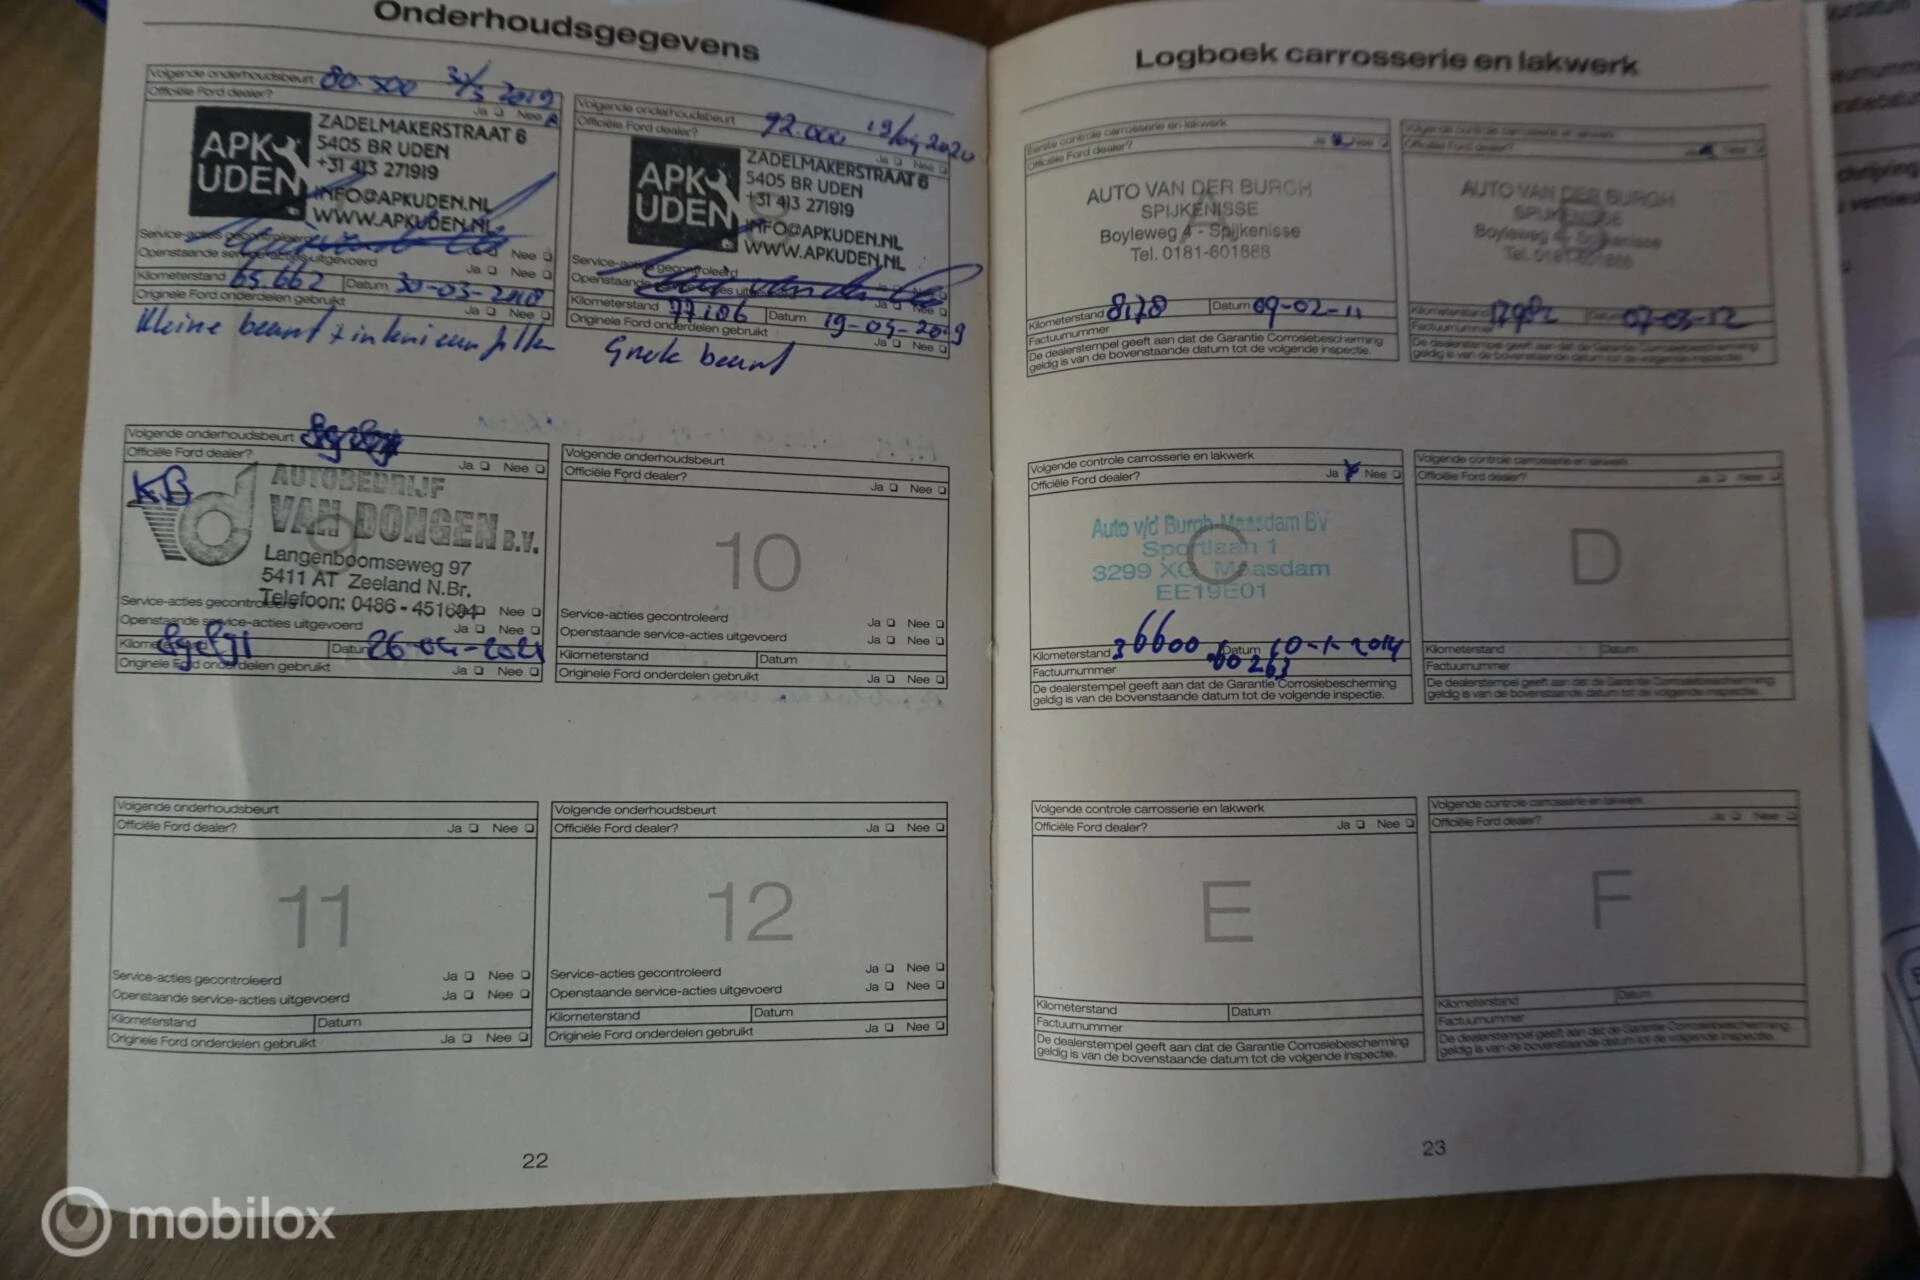 Onderhoudsgegevens
Volgende onderhoudsbeurt 80.500 3/5 2019
Officiële Ford dealer? Ja Nee
APK UDEN
ZADELMAKERSTRAAT 6
5405 BR UDEN
+31 413 271919
INFO@APKUDEN.NL
WWW.APKUDEN.NL
Service-acties gecontroleerd Nee
Openstaande service-acties uitgevoerd Ja Nee
Kilometerstand 65.662 Datum 30-03-2018
Originele Ford onderdelen gebruikt Ja Nee
Kleine beurt + interieurfilter
Volgende onderhoudsbeurt 92.000 19/04 2020
Officiële Ford dealer? Ja Nee
APK UDEN
ZADELMAKERSTRAAT 6
5405 BR UDEN
+31 413 271919
INFO@APKUDEN.NL
WWW.APKUDEN.NL
Service-acties gecontroleerd Ja Nee
Openstaande service-acties uitgevoerd Ja Nee
Kilometerstand 77.106 Datum 19-04-2019
Originele Ford onderdelen gebruikt Ja Nee
Grote beurt
Volgende onderhoudsbeurt
Officiële Ford dealer? Ja Nee
KB
AUTOBEDRIJF
VAN DONGEN B.V.
Langenboomseweg 97
5411 AT Zeeland N.Br.
Telefoon: 0486 - 451604
Service-acties gecontroleerd Nee
Openstaande service-acties uitgevoerd Ja Nee
Datum 26-04-2021
Originele Ford onderdelen gebruikt Ja Nee
Volgende onderhoudsbeurt
Officiële Ford dealer? Ja Nee
10
Service-acties gecontroleerd Ja Nee
Openstaande service-acties uitgevoerd Ja Nee
Kilometerstand Datum
Originele Ford onderdelen gebruikt Ja Nee
Volgende onderhoudsbeurt
Officiële Ford dealer? Ja Nee
11
Service-acties gecontroleerd Ja Nee
Openstaande service-acties uitgevoerd Ja Nee
Kilometerstand Datum
Originele Ford onderdelen gebruikt Ja Nee
Volgende onderhoudsbeurt
Officiële Ford dealer? Ja Nee
12
Service-acties gecontroleerd Ja Nee
Openstaande service-acties uitgevoerd Ja Nee
Kilometerstand Datum
Originele Ford onderdelen gebruikt Ja Nee
22
Logboek carrosserie en lakwerk
Eerste controle carrosserie en lakwerk
Officiële Ford dealer? Ja Nee
A
AUTO VAN DER BURGH
SPIJKENISSE
Boyleweg 4 - Spijkenisse
Tel. 0181-601888
Kilometerstand 8178 Datum 09-02-11
Factuurnummer
De dealerstempel geeft aan dat de Garantie Corrosiebescherming
geldig is van de bovenstaande datum tot de volgende inspectie.
Volgende controle carrosserie en lakwerk
Officiële Ford dealer? Nee
AUTO VAN DER BURGH
SPIJKENISSE
Boyleweg 4 - Spijkenisse
Tel. 0181-601888
Kilometerstand 17982 Datum 07-03-12
Factuurnummer
De dealerstempel geeft aan dat de Garantie Corrosiebescherming
geldig is van de bovenstaande datum tot de volgende inspectie.
Volgende controle carrosserie en lakwerk
Officiële Ford dealer? Ja Nee
C
Auto v/d Burgh Maasdam BV
Sportlaan 1
3299 XG Maasdam
EE19E01
Kilometerstand 36600 Datum 10-1-2014
Factuurnummer 60263
De dealerstempel geeft aan dat de Garantie Corrosiebescherming
geldig is van de bovenstaande datum tot de volgende inspectie.
Volgende controle carrosserie en lakwerk
Officiële Ford dealer? Ja Nee
D
Kilometerstand Datum
Factuurnummer
De dealerstempel geeft aan dat de Garantie Corrosiebescherming
geldig is van de bovenstaande datum tot de volgende inspectie.
Volgende controle carrosserie en lakwerk
Officiële Ford dealer? Ja Nee
E
Kilometerstand Datum
Factuurnummer
De dealerstempel geeft aan dat de Garantie Corrosiebescherming
geldig is van de bovenstaande datum tot de volgende inspectie.
Volgende controle carrosserie en lakwerk
Officiële Ford dealer? Ja Nee
F
Kilometerstand Datum
Factuurnummer
De dealerstempel geeft aan dat de Garantie Corrosiebescherming
geldig is van de bovenstaande datum tot de volgende inspectie.
23
mobilox